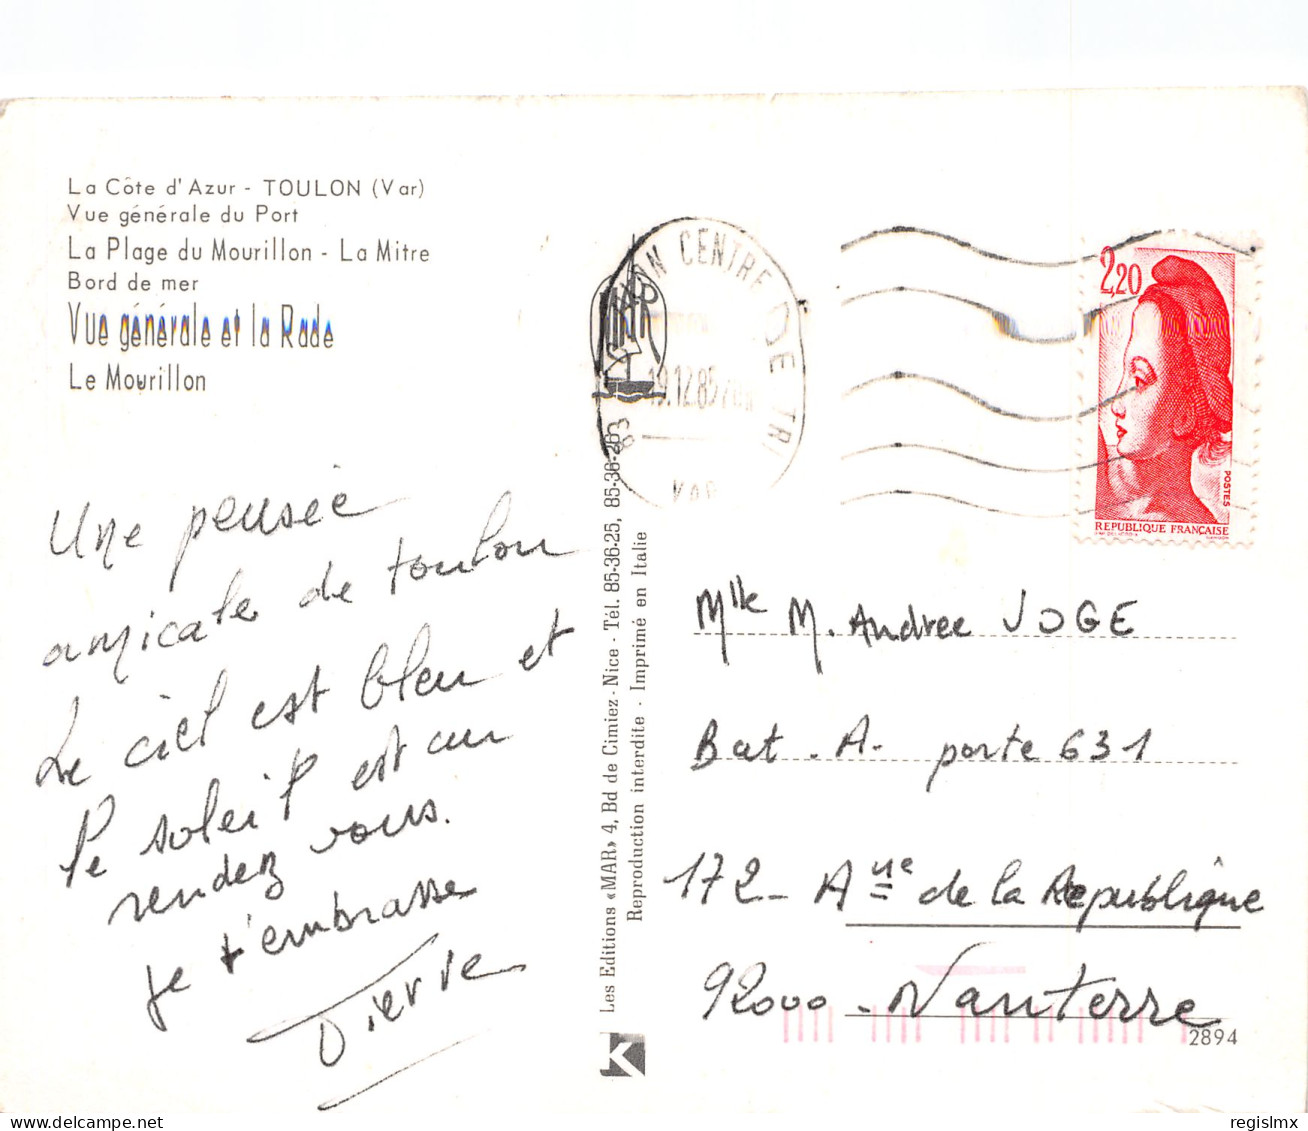 La Côte d'Azur - TOULON (Var)
Vue générale du Port
La Plage du Mourillon - La Mitre
Bord de mer
Vue générale et la Rade
Le Mourillon
Une pensée
amicale de toulon
Le ciel est bleu et
le soleil est au
rendez vous.
je t'embrasse
Pierre
Les Editions «MAR» 4, Bd de Cimiez - Nice - Tél. 85-36-25, 85-36-26
Reproduction interdite - Imprimé en Italie
MAR
K
CENTRE DE TRI
83
VAR
19.12.85
2,20
POSTES
REPUBLIQUE FRANÇAISE
Mlle M. Andree JOGE
Bat. A. porte 631
172 - Aue de la Republique
92000 - Nanterre
2894
delcampe.net
regislmx